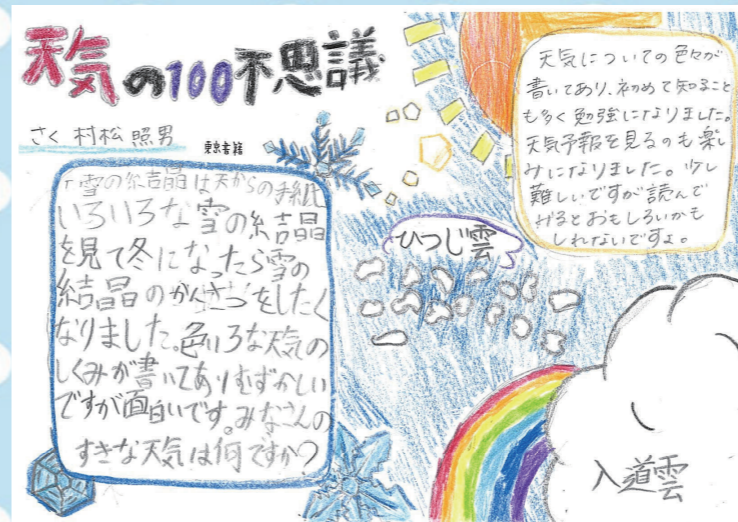 天気の100不思議
さく 村松照男
東京書籍
「雪の結晶は天からの手紙」
いろいろな雪の結晶
を見て冬になったら雪の
結晶のかんさつをしたく
なりました。色いろな天気の
しくみが書いてありむずかしい
ですが面白いです。みなさんの
すきな天気は何ですか？
天気についての色々が
書いてあり、初めて知ること
も多く勉強になりました。
天気予報を見るのも楽し
みになりました。少し
難しいですが読んで
みるとおもしろいかも
しれないですよ。
ひつじ雲
入道雲